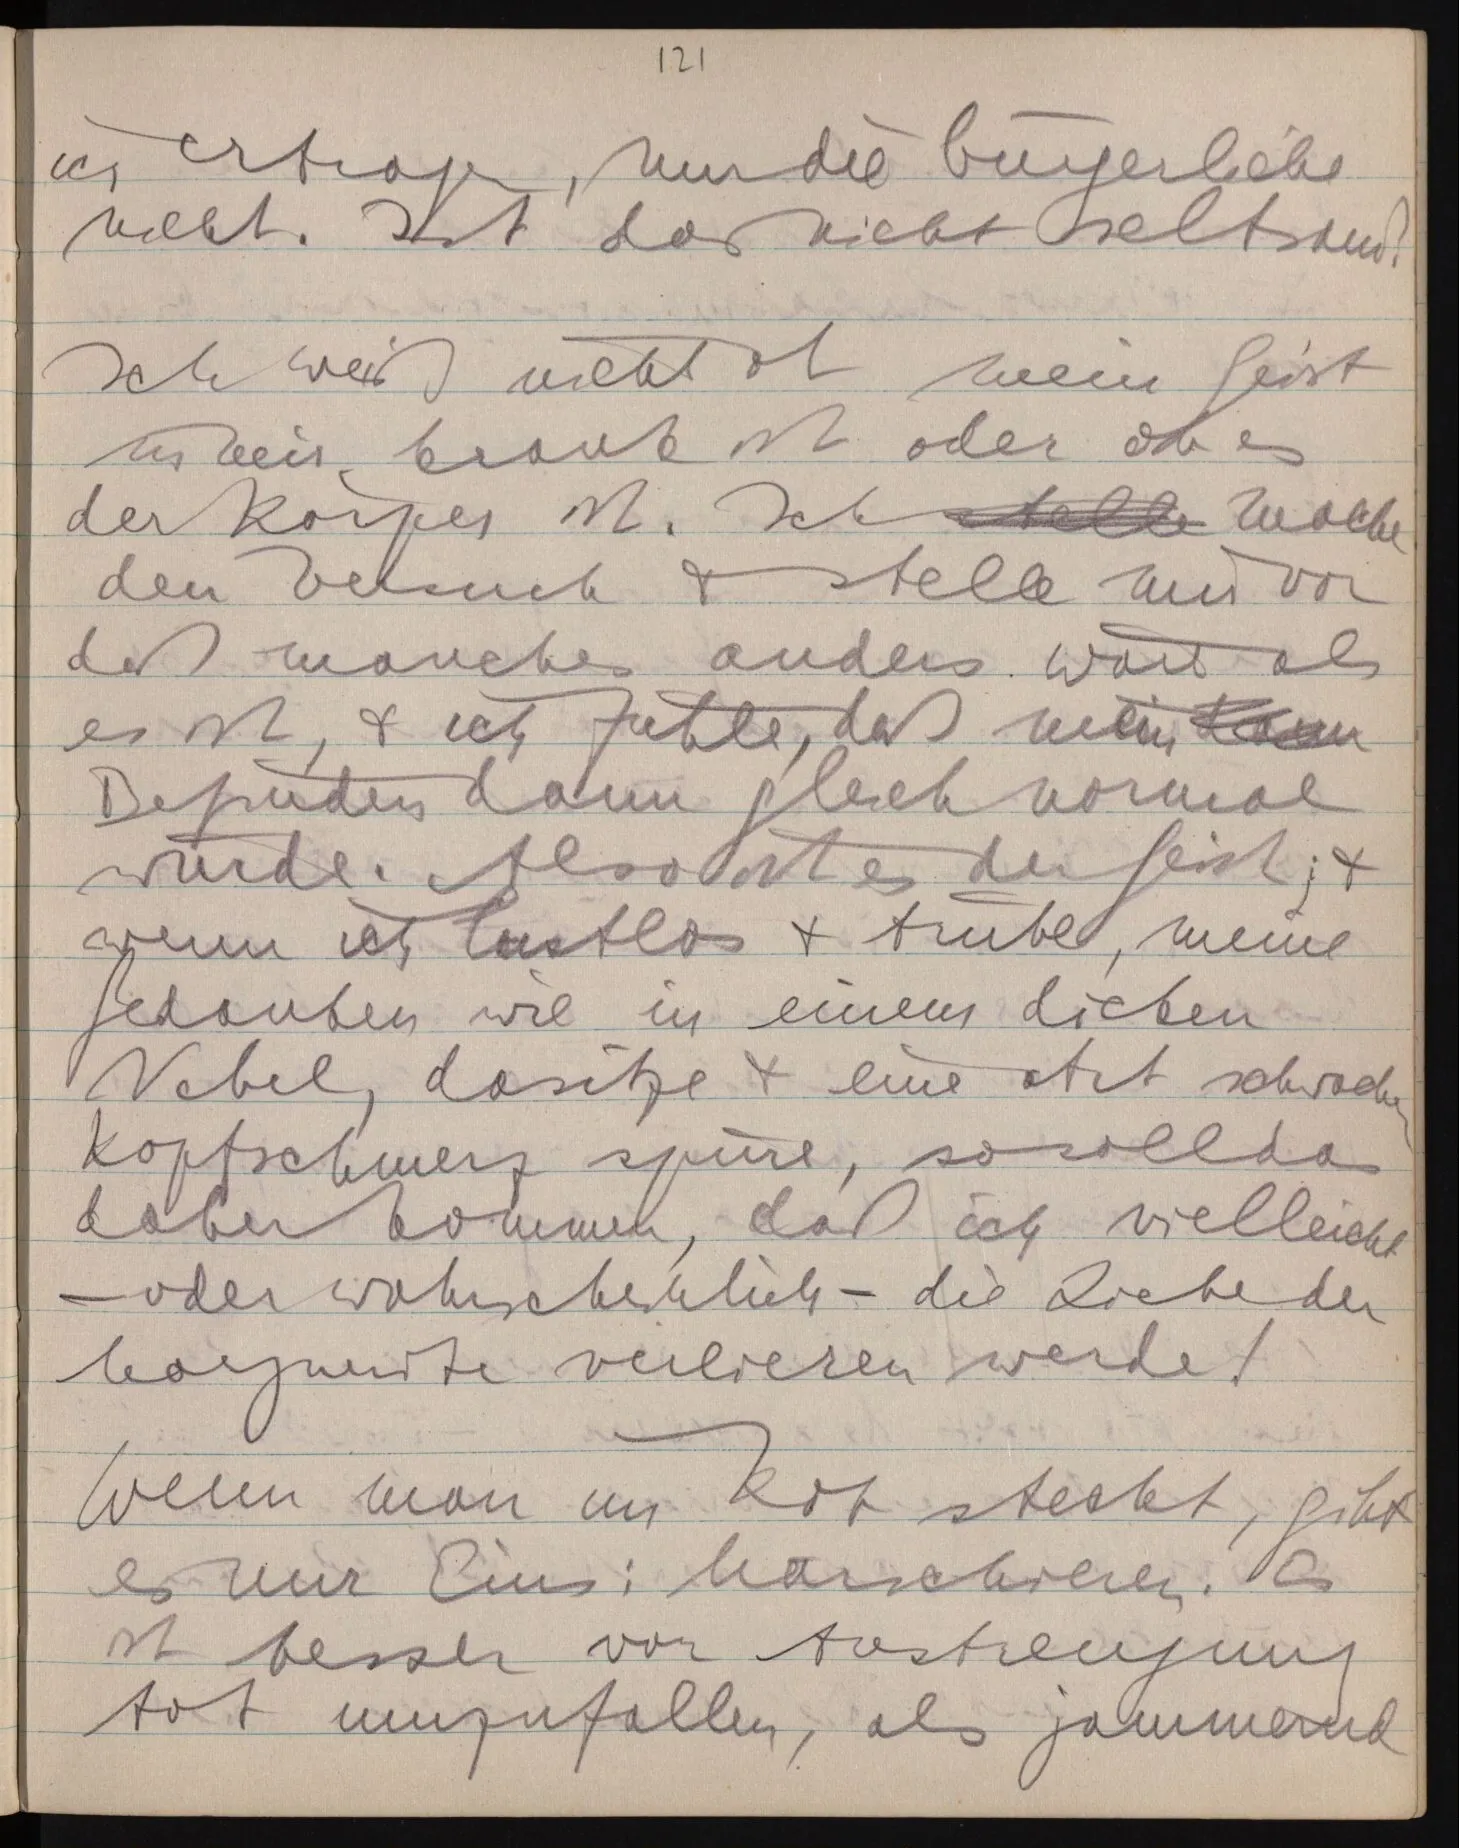 121
ich ertragen, nur die bürgerliche
nicht. Ist das nicht seltsam?
Ich weiß nicht ob mein Geist
in mir krank ist oder ob es
der Körper ist. Ich stelle mache
den Versuch & stelle mir vor
daß manches anders wäre als
es ist, & ich fühle, daß mein
Befinden dann gleich normal
würde. Also ist es der Geist; &
wenn ich lustlos & trübe, meine
Gedanken wie in einem dicken
Nebel, dasitze & eine Art schwachen
Kopfschmerz spüre, so soll das
daher kommen, daß ich vielleicht
– oder wahrscheinlich – die Liebe der
Marguerite verlieren werde!
Wenn man im Kot steckt, gibt
es nur Eins: Marschieren. Es
ist besser vor Anstrengung
tot umzufallen, als jammernd